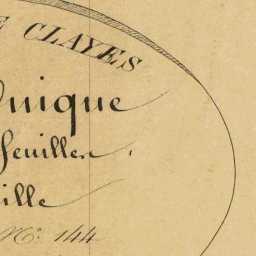 CLAYES
unique
feuille.
ille
N.º 144